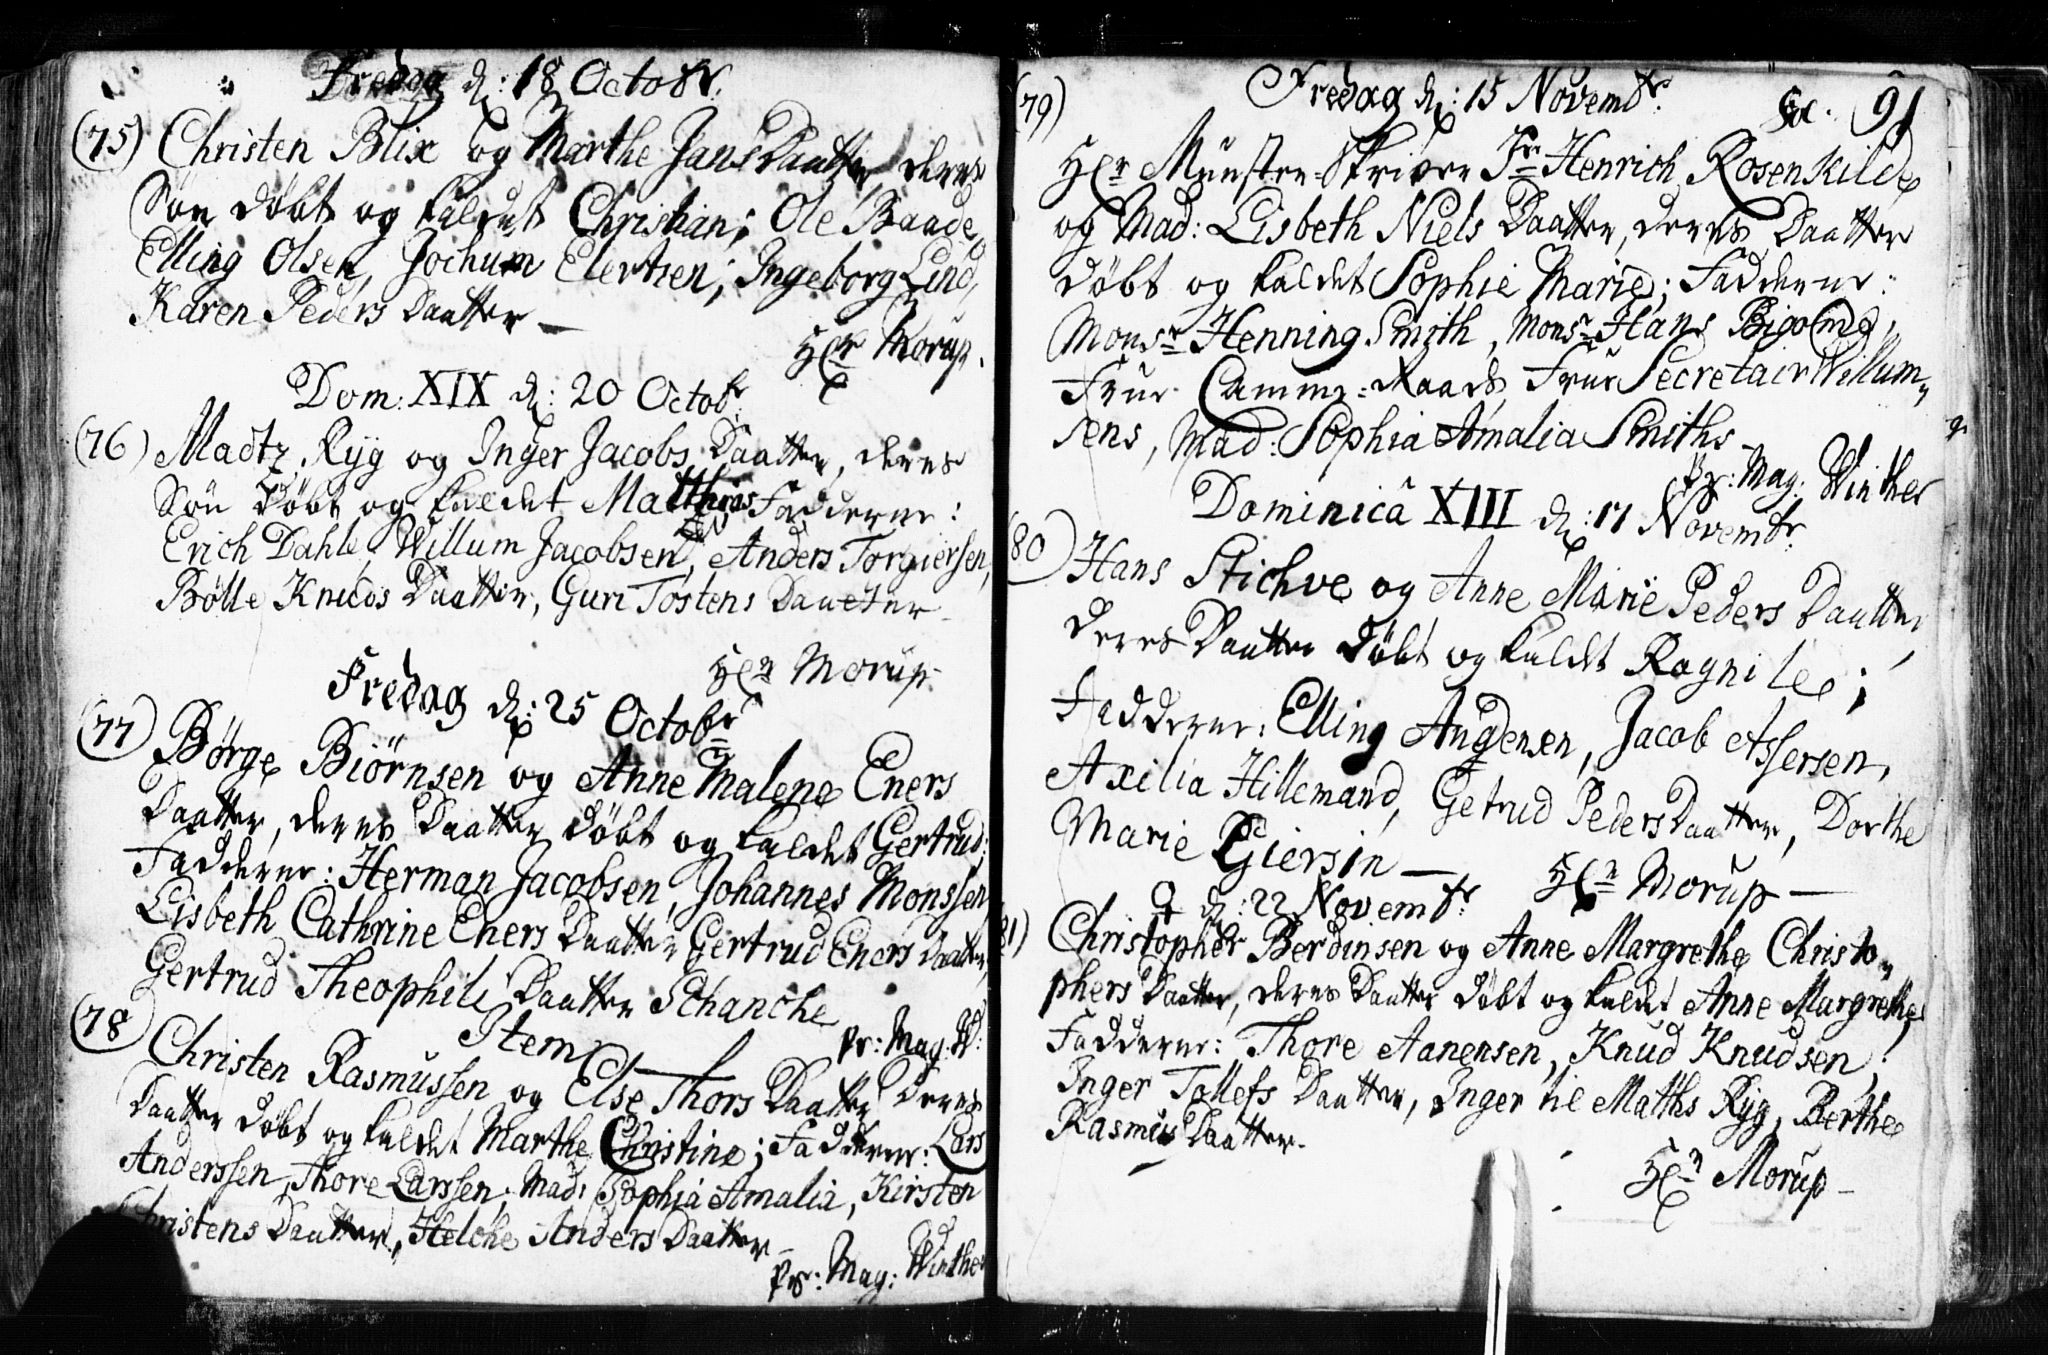 Fredag d: 18 Octobr.
(75) Christen Blix og Marthe Jans Daatter deres
Søn døbt og kaldet Christian; Ole Baade,
Elling Olsen, Jochum Elertsen; Ingeborg Lind,
Karen Peders Daatter —
Hr Morup.
Dom: XIX d: 20 Octobr.
(76) Madtz Ryg og Inger Jacobs Daatter, deres
Søn døbt og kaldet Matthias Fadderne:
Erich Dahle, Willum Jacobsen, Anders Torgiersen,
Bølle Knuds Daatter, Guri Tostens Daatter
Hr Morup.
Fredag d: 25 Octobr
(77) Børge Biørnsen og Anne Malene Eners
Daatter, deres Daatter døbt og kaldet Gertrud;
Fadderne: Herman Jacobsen, Johannes Monssen
Lisbeth Cathrine Eners Daatter Gertrud Eners Daatter,
Gertrud Theophili Daatter Schanche
Pr: Mag: W:
Item
(78) Christen Rasmussen og Else Thors Daatter deres
Daatter døbt og kaldet Marthe Christine; Fadderne: Lars
Anderssen, Thore Larssen, Mad: Sophia Amalia, Kirsten
Christens Daatter, Helche Anders Daatter —
Pr: Mag: Winther
Fol. 91
Fredag d: 15 Novembr.
(79)
Hr Munster-Skriver Sr Henrich Rosenkilde
og Mad: Lisbeth Niels Daatter, deres Daatter
døbt og kaldet Sophie Marie; Fadderne:
Monsr Henning Smith, Monsr Hans
Frue Cammer-Raads, Frue Secretair Willum-
sens, Mad: Sophia Amalia Smiths —
Pr: Mag: Winther
Dominicâ XIII d: 17 Novembr.
(80) Hans Stichve og Anne Marie Peders Daatter,
deres Daatter døbt og kaldet Ragnile;
Fadderne: Elling Augensen, Jacob Assersen,
Axilia Hillemand, Getrud Peders Daatter, Dorthe
Marie Giersin —
Hr Morup —
♀ d: 22 Novembr.
81) Christopher Berdinsen og Anne Margrethe Christo-
phers Daatter, deres Daatter døbt og kaldet Anne Margrethe,
Fadderne: Thore Aanensen, Knud Knudsen,
Inger Tollefs Daatter, Inger til Matths Ryg, Berthe
Rasmus Daatter.
Hr Morup —